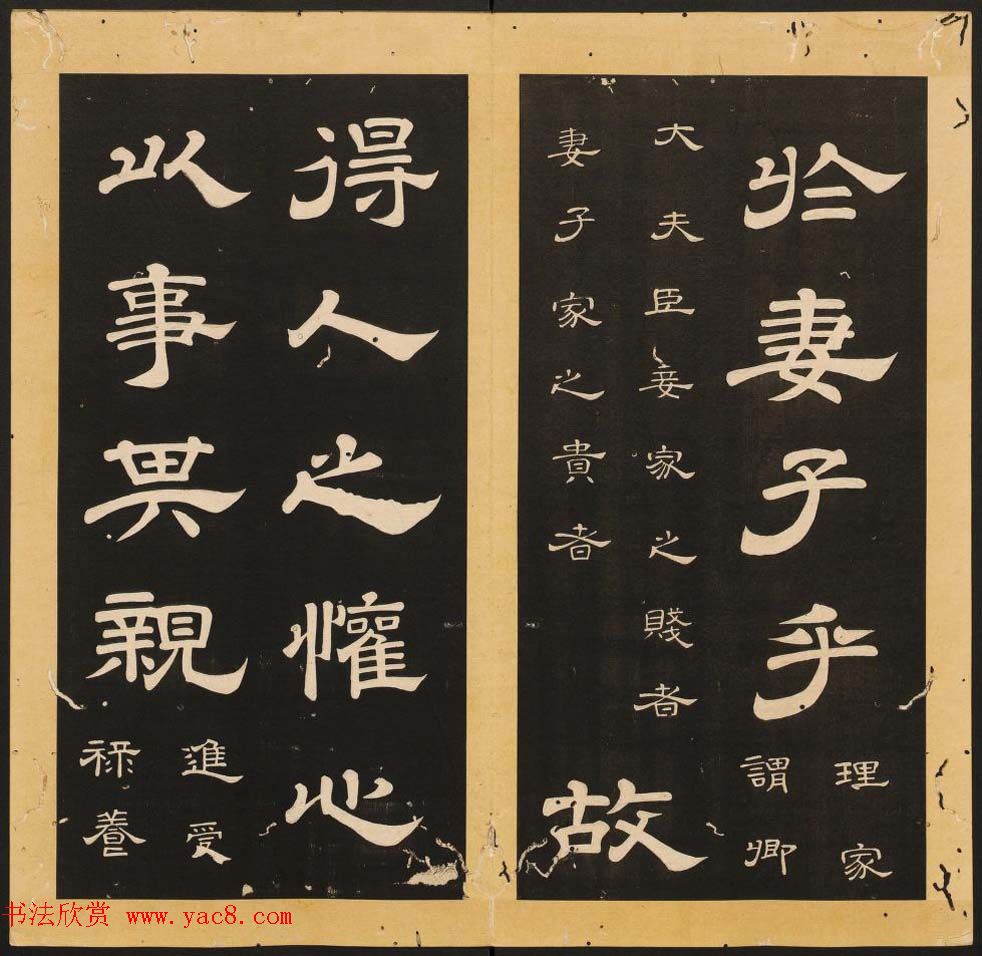 於妻子乎
理家
謂卿
大夫臣妾家之賤者
妻子家之貴者
故
得人之懽心
以事其親
進受
祿養
书法欣赏 www.yac8.com